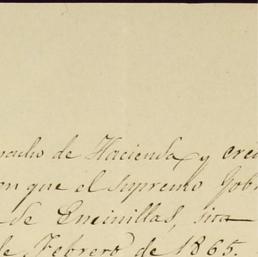 pacho de Hacienda y cre
on que el supremo Gob
de Encinillas, sin
de Febrero de 1865.